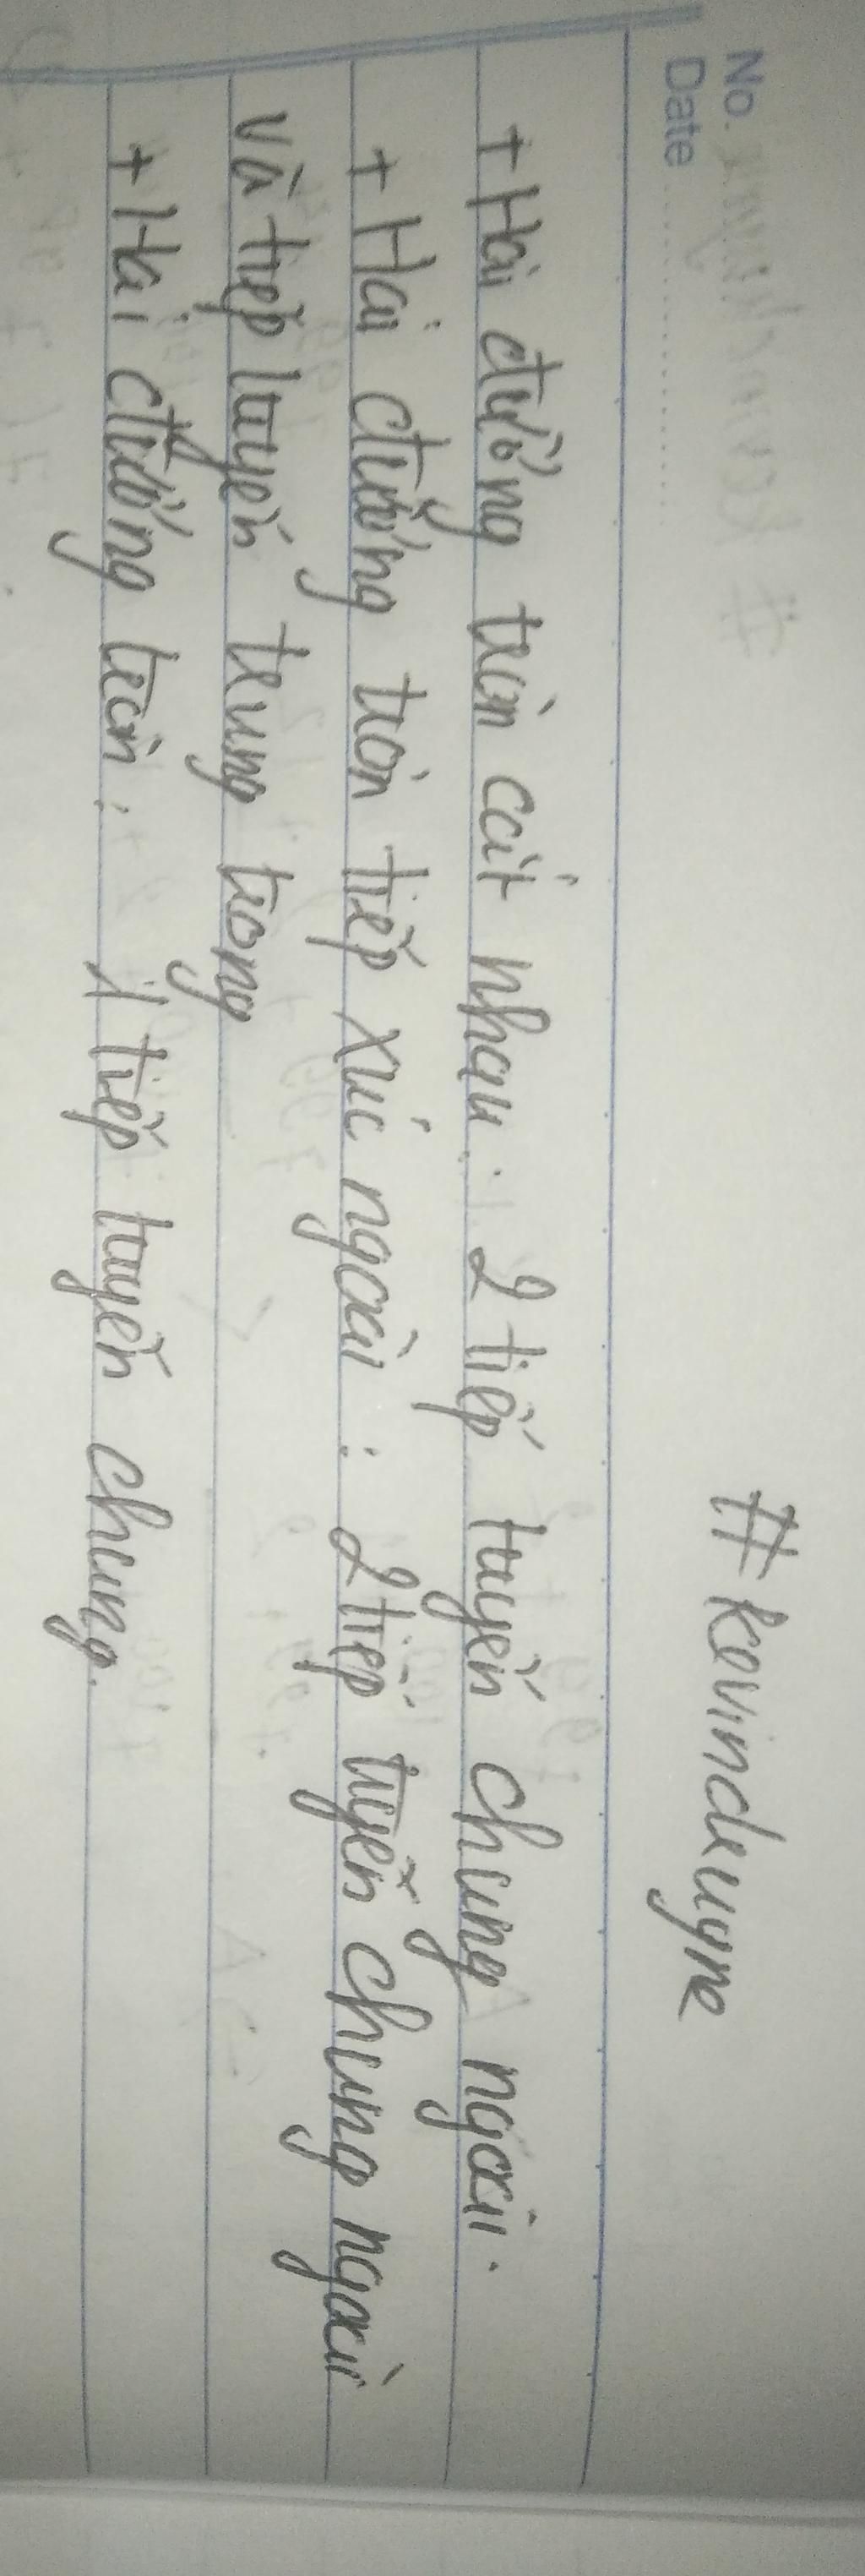 No.
Date
#kevindeuyne
+ Hai đường tròn cắt nhau: 2 tiếp tuyến chung ngoài.
+ Hai đường tròn tiếp xúc ngoài: 2 tiếp tuyến chung ngoài
và tiếp tuyến trung trong
+ Hai đường tròn: 1 tiếp tuyến chung.